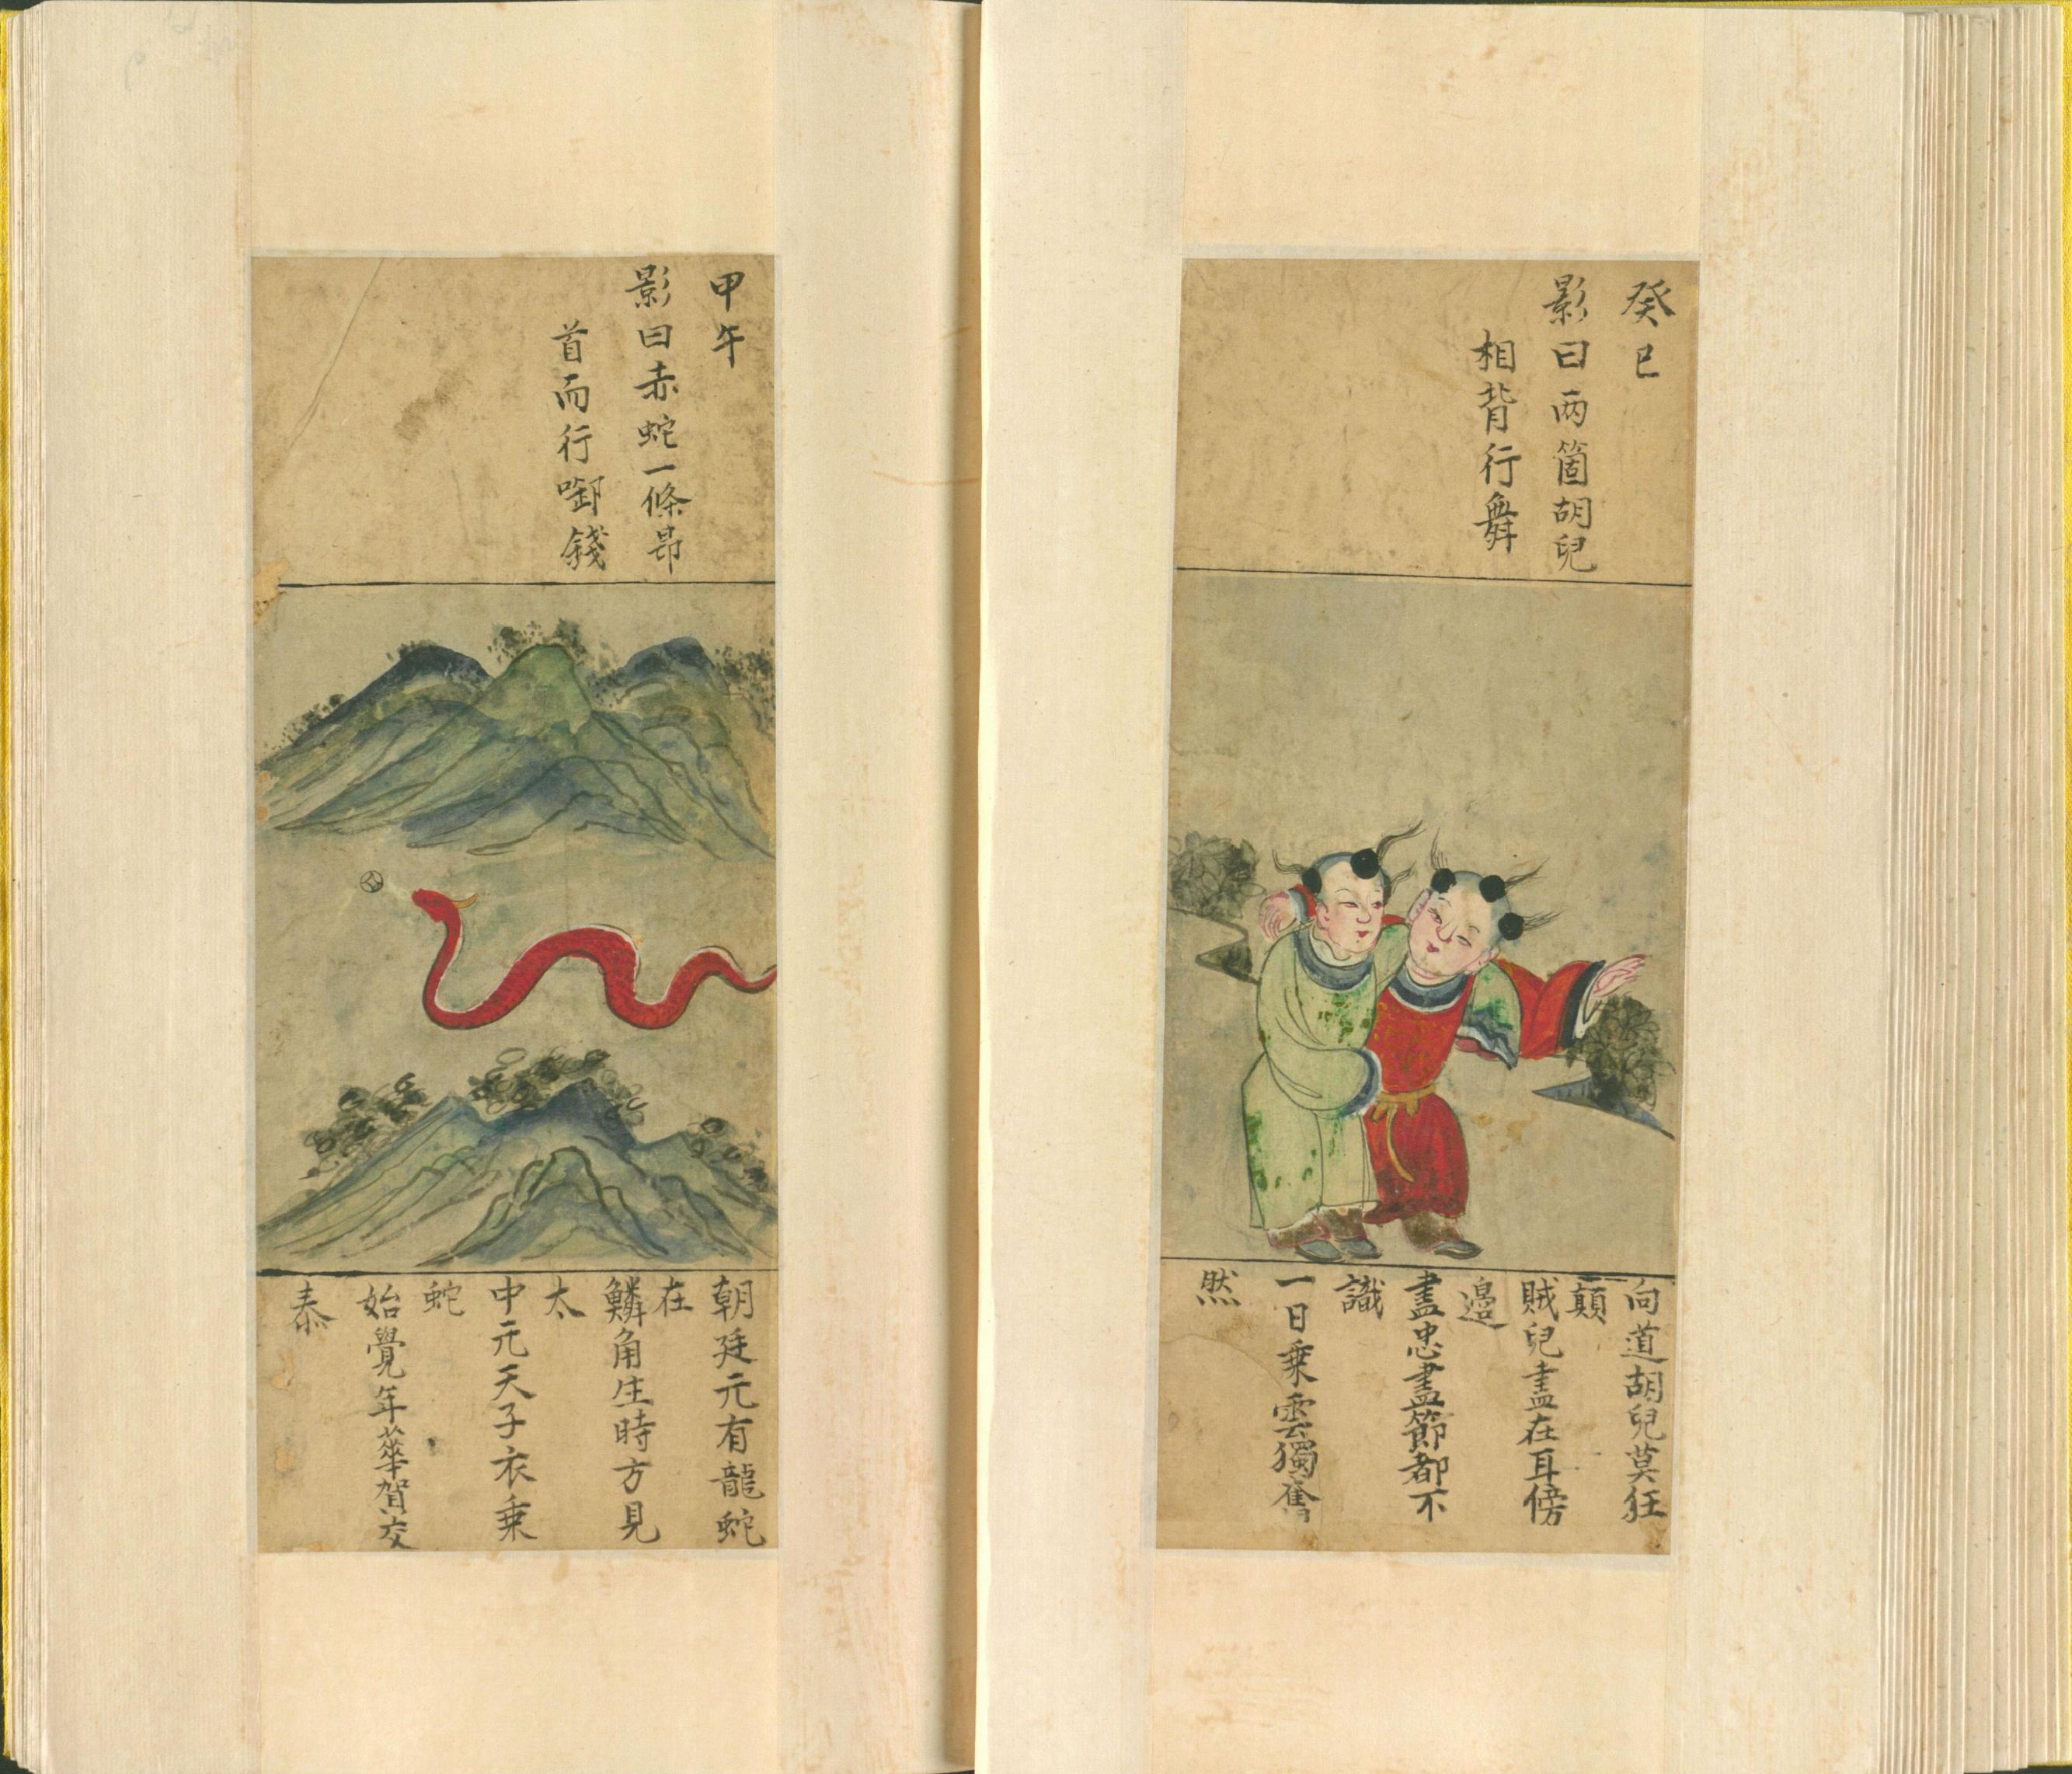 癸巳
影曰兩箇胡兒
相背行舞
向道胡兒莫狂
顛
賊兒盡在耳傍
邊
盡忠盡節都不
識
一日乗雲獨奮
然
甲午
影曰赤蛇一條昂
首而行啣錢
朝廷元有龍蛇
在
鱗角生時方見
太
中元天子衣乗
蛇
始覺年華賀交
泰